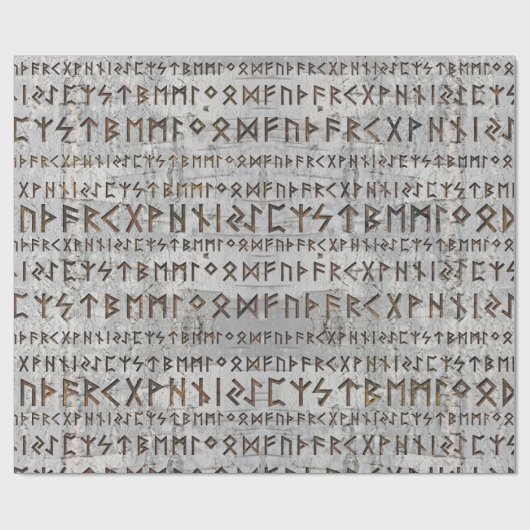 ᚢᚦᚨᚱᚲᚷᚹᚺᚾᛁᛃᛇᛈᛉᛊᛏᛒᛖᛗᛚᛜᛟᛞᚠᚢᚦᚨᚱᚲᚷᚹᚺᚾᛁᛃᛇᛈᛉᛊ
ᛁᛃᛇᛈᛉᛊᛏᛒᛖᛗᛚᛜᛟᛞᚠᚢᚦᚨᚱᚲᚷᚹᚺᚾᛁᛃᛇᛈᛉᛊ
ᛇᛈᛉᛊᛏᛒᛖᛗᛚᛜᛟᛞᚠᚢᚦᚨᚱᚲᚷᚹᚺ
ᚦᚨᚱᚲᚷᚹᚺᚾᛁᛃᛇᛈᛉᛊᛏᛒᛖᛗᛚᛜᛟᛞᚠᚢᚦᚨᚱᚲᚷᚹᚺᚾᛁᛃᛇᛈᛉᛊ
ᚷᚹᚺᚾᛁᛃᛇᛈᛉᛊᛏᛒᛖᛗᛚᛜᛟᛞᚠᚢᚦᚨᚱᚲᚷᚹᚺᚾᛁᛃᛇᛈᛉᛊᛏᛒᛖ
ᚢᚦᚨᚱᚲᚷᚹᚺᚾᛁᛃᛇᛈᛉᛊᛏᛒᛖᛗᛚᛜᛟᛞ
ᚦᚨᚱᚲᚷᚹᚺᚾᛁᛃᛇᛈᛉᛊᛏᛒᛖᛗᛚᛜᛟᛞᚠᚢᚦᚨᚱᚲᚷᚹᚺᚾᛁᛃᛇᛈᛉᛊ
ᛁᛃᛇᛈᛉᛊᛏᛒᛖᛗᛚᛜᛟᛞᚠᚢᚦᚨᚱᚲᚷᚹᚺᚾᛁᛃᛇᛈᛉᛊ
ᛇᛈᛉᛊᛏᛒᛖᛗᛚᛜᛟᛞᚠᚢᚦᚨᚱᚲᚷᚹᚺ
ᚦᚨᚱᚲᚷᚹᚺᚾᛁᛃᛇᛈᛉᛊᛏᛒᛖᛗᛚᛜᛟᛞᚠᚢᚦᚨᚱᚲᚷᚹᚺᚾᛁᛃᛇᛈᛉᛊ
ᚷᚹᚺᚾᛁᛃᛇᛈᛉᛊᛏᛒᛖᛗᛚᛜᛟᛞᚠᚢᚦᚨᚱᚲᚷᚹᚺᚾᛁᛃᛇᛈᛉᛊᛏᛒᛖ
ᚢᚦᚨᚱᚲᚷᚹᚺᚾᛁᛃᛇᛈᛉᛊᛏᛒᛖᛗᛚᛜᛟᛞ
ᚦᚨᚱᚲᚷᚹᚺᚾᛁᛃᛇᛈᛉᛊᛏᛒᛖᛗᛚᛜᛟᛞᚠᚢᚦᚨᚱᚲᚷᚹᚺᚾᛁᛃᛇᛈᛉᛊ
ᛁᛃᛇᛈᛉᛊᛏᛒᛖᛗᛚᛜᛟᛞᚠᚢᚦᚨᚱᚲᚷᚹᚺᚾᛁᛃᛇᛈᛉᛊ